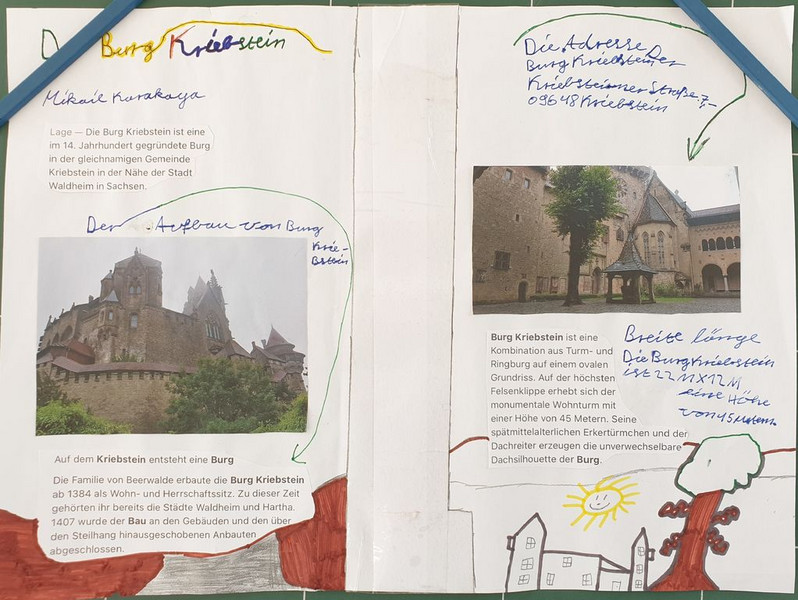 D Burg Kriebstein
Mikail Karakaya
Lage — Die Burg Kriebstein ist eine
im 14. Jahrhundert gegründete Burg
in der gleichnamigen Gemeinde
Kriebstein in der Nähe der Stadt
Waldheim in Sachsen.
Der Aufbau von Burg
Krie-
bstein
Auf dem Kriebstein entsteht eine Burg
Die Familie von Beerwalde erbaute die Burg Kriebstein
ab 1384 als Wohn- und Herrschaftssitz. Zu dieser Zeit
gehörten ihr bereits die Städte Waldheim und Hartha.
1407 wurde der Bau an den Gebäuden und den über
den Steilhang hinausgeschobenen Anbauten
abgeschlossen.
Die Adresse
Burg Kriebstein
Kriebsteiner Straße 7,
09648 Kriebstein
Burg Kriebstein ist eine
Kombination aus Turm- und
Ringburg auf einem ovalen
Grundriss. Auf der höchsten
Felsenklippe erhebt sich der
monumentale Wohnturm mit
einer Höhe von 45 Metern. Seine
spätmittelalterlichen Erkertürmchen und der
Dachreiter erzeugen die unverwechselbare
Dachsilhouette der Burg.
Breite länge
Die Burg Kriebstein
ist 22 M X 12 M
eine Höhe
von 45 Metern.